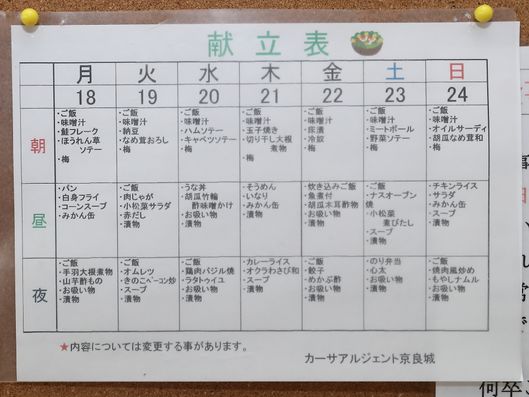 献立表
月 火 水 木 金 土 日
18 19 20 21 22 23 24
朝
・ご飯 ・ご飯 ・ご飯 ・ご飯 ・ご飯 ・ご飯 ・ご飯
・味噌汁 ・味噌汁 ・味噌汁 ・味噌汁 ・味噌汁 ・味噌汁 ・味噌汁
・鮭フレーク ・納豆 ・ハムソテー ・玉子焼き ・冷奴 ・ミートボール ・オイルサーディ
・ほうれん草 ・なめ茸おろし ・キャベツソテー ・切り干し大根 ・梅 ・野菜ソテー ・胡瓜なめ茸和
ソテー ・梅 ・梅 煮物 ・梅 ・梅
・梅 ・梅
昼
・パン ・ご飯 ・うな丼 ・そうめん ・炊き込みご飯 ・ご飯 ・チキンライス
・白身フライ ・肉じゃが ・胡瓜竹輪 ・いなり ・魚煮付 ・ナスオープン ・サラダ
・コーンスープ ・小松菜サラダ 酢味噌かけ ・みかん缶 ・胡瓜木耳酢物 焼 ・みかん缶
・みかん缶 ・赤だし ・お吸い物 ・漬物 ・お吸い物 ・小松菜 ・スープ
・漬物 ・漬物 ・漬物 煮びたし ・漬物
・スープ
・漬物
夜
・ご飯 ・ご飯 ・ご飯 ・カレーライス ・ご飯 ・のり弁当 ・ご飯
・手羽大根煮物 ・オムレツ ・鶏肉バジル焼 ・オクラわさび和 ・餃子 ・心太 ・焼肉風炒め
・山芋酢もの ・きのこベーコン炒 ・ラタトゥイユ ・スープ ・めかぶ酢 ・お吸い物 ・もやしナムル
・お吸い物 ・スープ ・お吸い物 ・漬物 ・お吸い物 ・漬物 ・お吸い物
・漬物 ・漬物 ・漬物 ・漬物 ・漬物
★内容については変更する事があります。
カーサアルジェント京良城
何卒